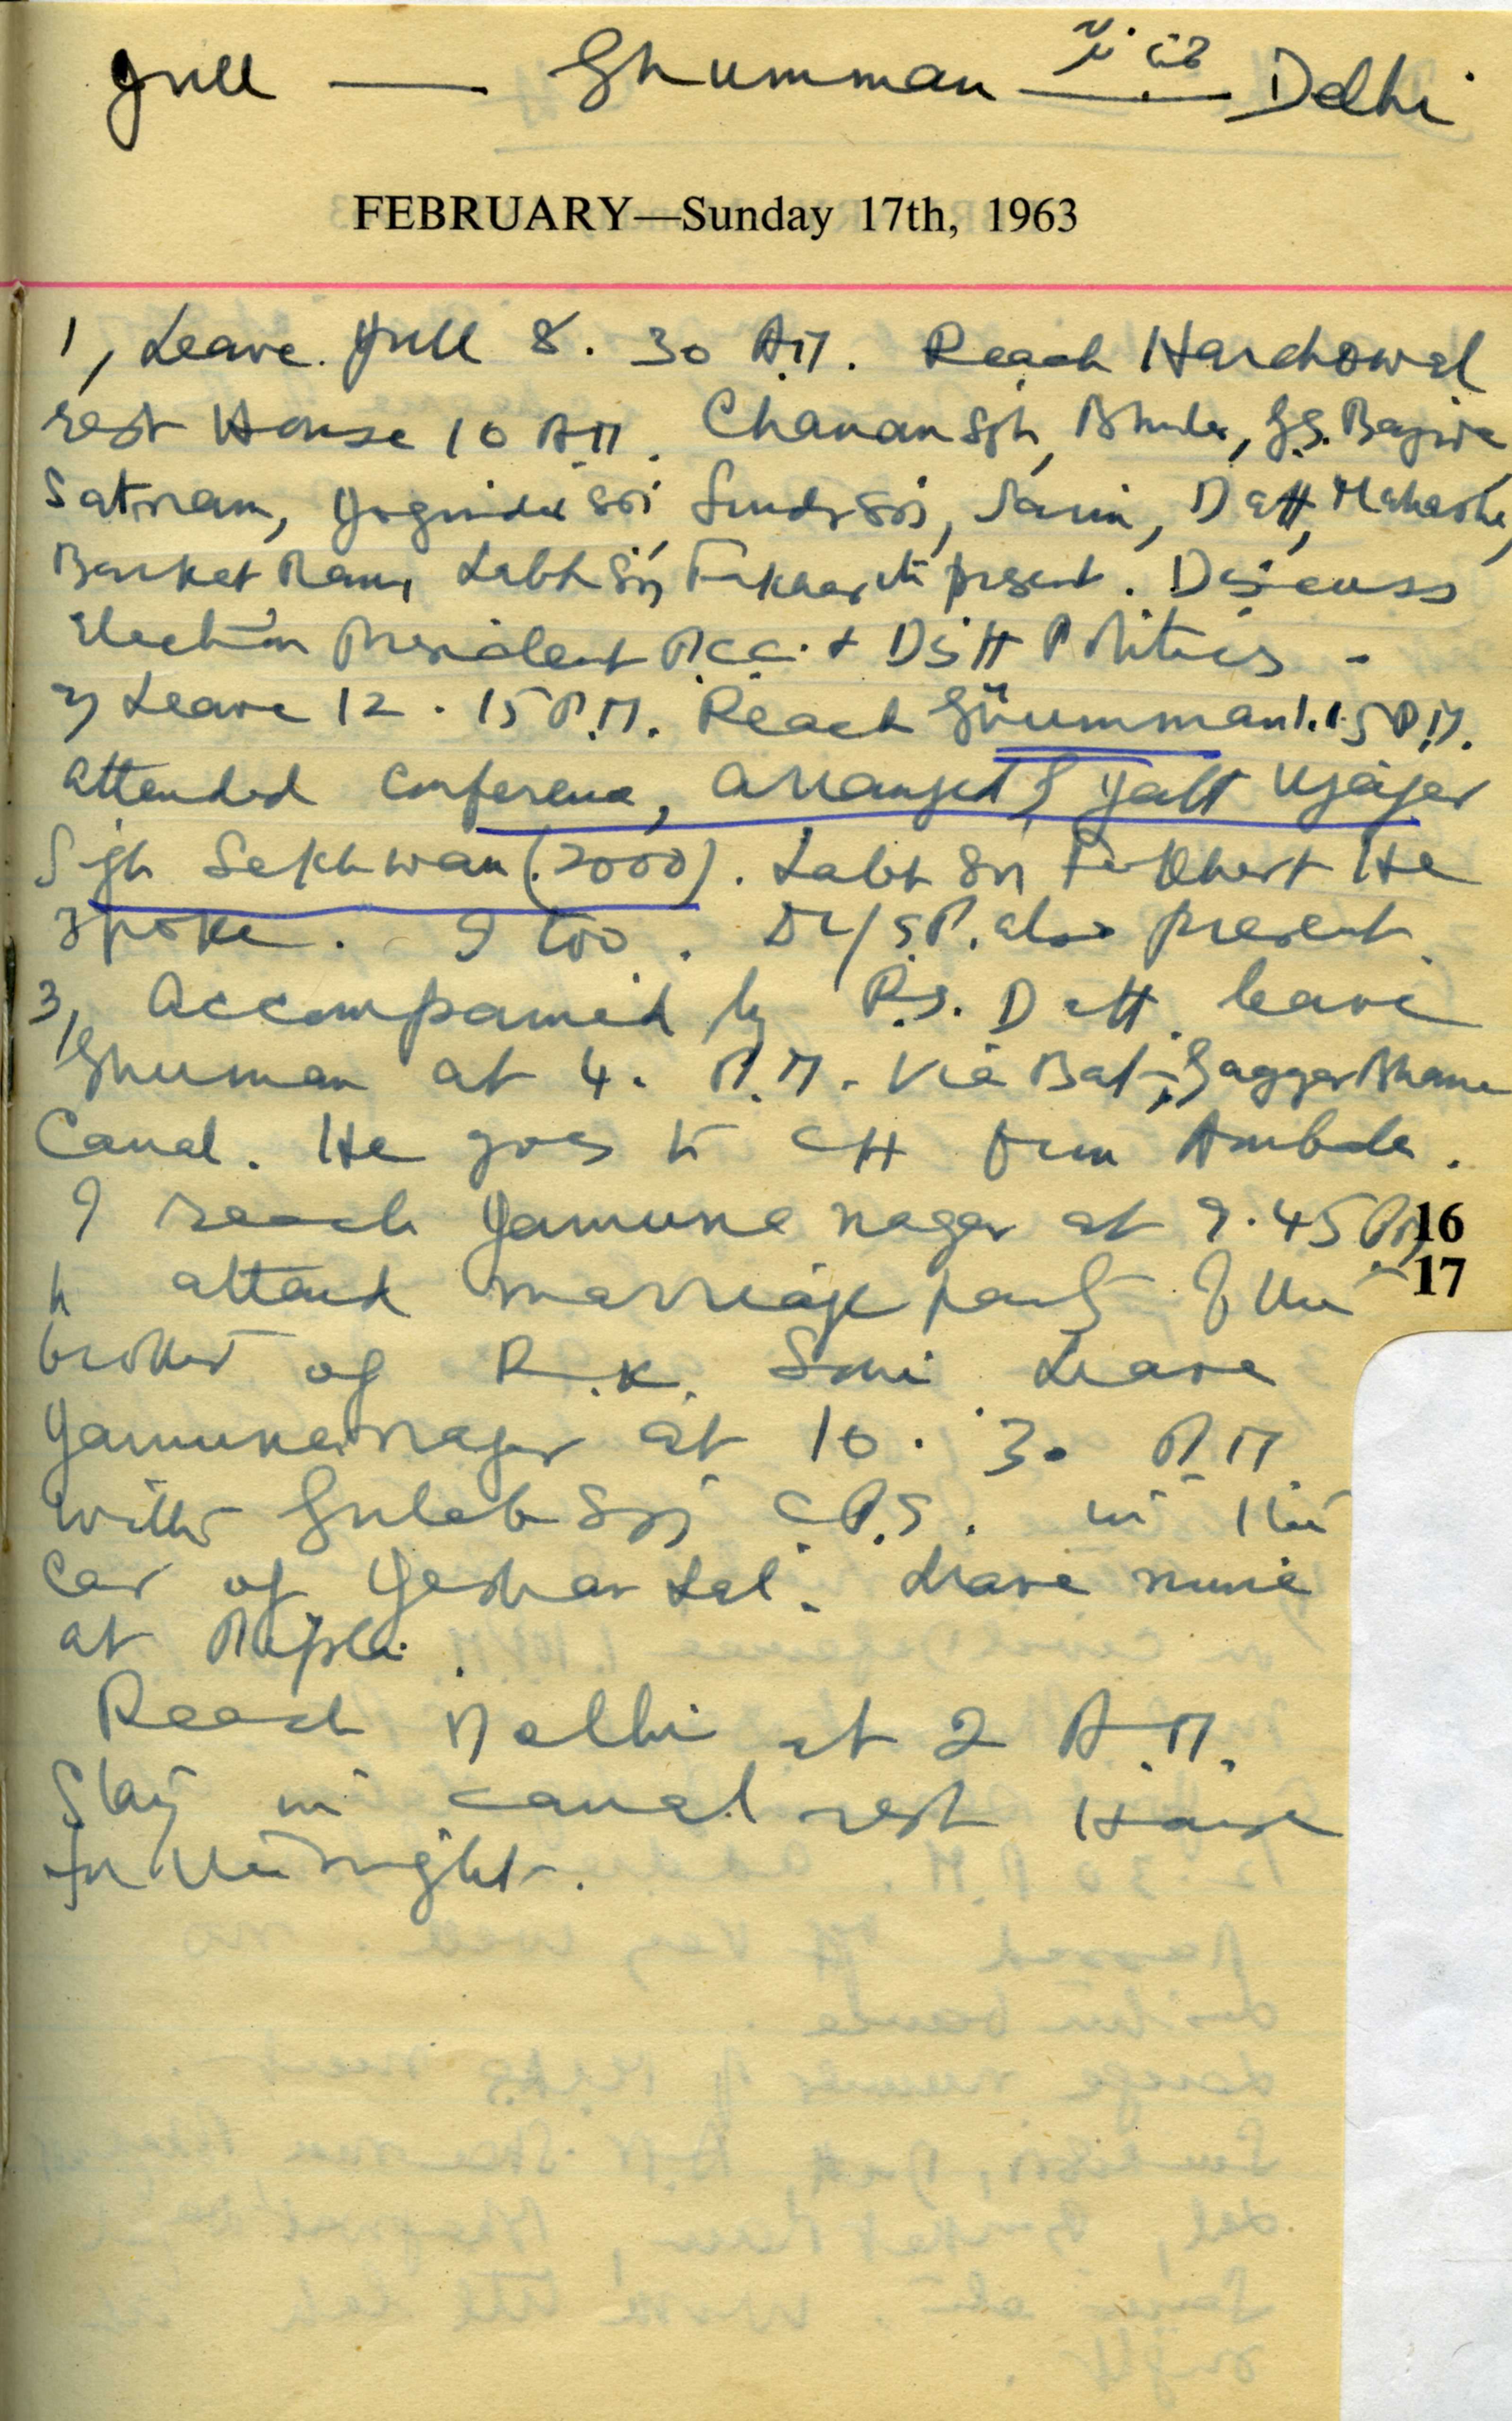 Jull — Ghumman — Delhi
FEBRUARY—Sunday 17th, 1963
1, Leave Jull 8.30 A.M. Reach Harchowal
rest House 10 A.M. Chanan Sgh, Bhuler, G.S. Bajwa
Satnam, Joginder Sgh, Sunder Sgh, Sarin, Datt, Mahasha,
Barket Ram, Labh Sgh Fakhar etc present. Discuss
Election President P.C.C. + Distt Politics -
2, Leave 12.15 P.M. Reach Ghumman 1.15 P.M.
attended conference, arranged by Jatt Ujagar
Sigh Sekhwan (2000). Labh Sgh He
spoke. I too. Dy/S.P. also present.
3, Accompanied by P.S. Datt. leave
Ghuman at 4. P.M. Via Bat-, Gaggar Bhana
Canal. He goes to CH from Ambala.
I reach Yamuna nagar at 9.45 P.M. 16
to attend marriage party of the 17
brother of R.K. Soni Leave
Yamunanagar at 10.30 P.M.
with Gulab Sgh C.P.S. in the
car of Yeshar Lal. Leave mine
at
Reach Delhi at 2 A.M.
Stay in canal rest House
for the night.